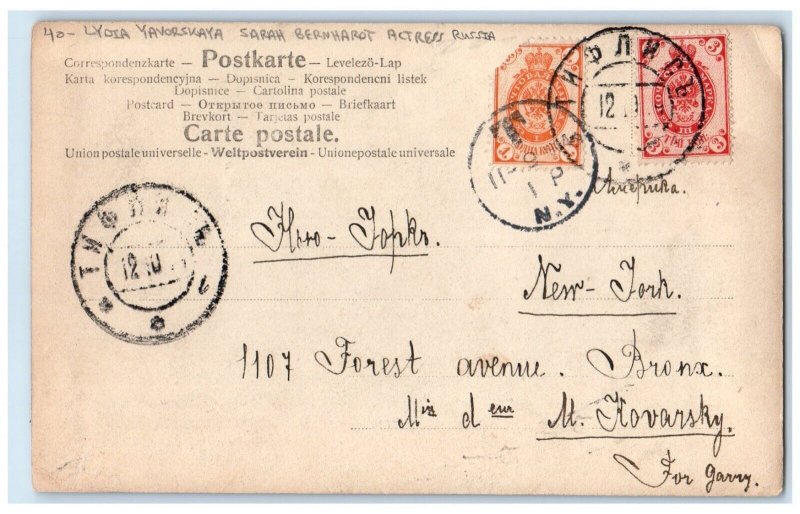 40- LYDIA YAVORSKAYA SARAH BERNHARDT ACTRESS RUSSIA
Correspondenzkarte — Postkarte — Levelező-Lap
Karta korespondencyjna — Dopisnica — Korespondencni listek
Dopisnice — Cartolina postale
Postcard — Открытое письмо — Briefkaart
Brevkort — Tarjetas postale
Carte postale.
Union postale universelle - Weltpostverein - Unionepostale universale
3
3
3
ТИФЛИСЪ
12
N.Y.
Америка.
ТИФЛИ
12
Нью-Іоркъ.
New-York.
1107 Forest avenue. Bronx.
M. Kovarsky.
For Garry.